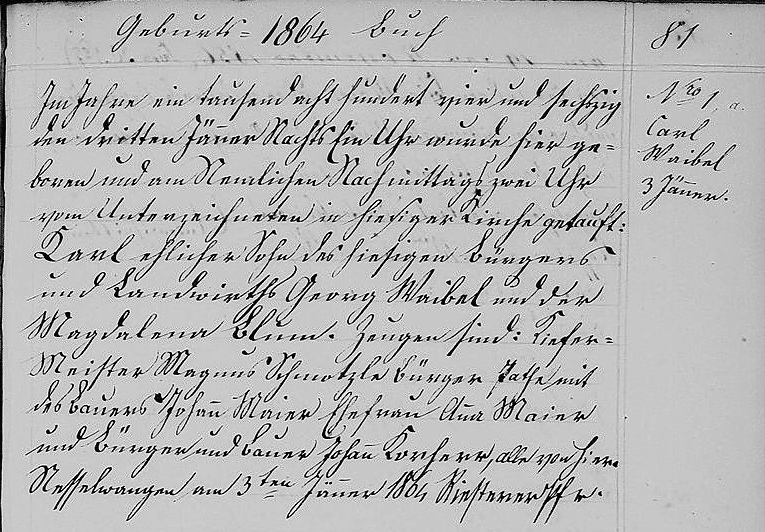 Geburts= 1864 Buch
81
Im Jahre ein tausend acht hundert vier und sechszig
den dritten Jänner Nachts Ein Uhr wurde hier ge=
boren und am Nemlichen Nachmittags zwei Uhr
vom Unterzeichneten in hiesiger Kirche getauft:
Karl ehlicher Sohn des hiesigen Bürgers
und Landwirths Georg Waibel und der
Magdalena Blum. Zeugen sind: Kiefer=
Meister Magnus Schmotzle Bürger Pathe mit
des Bauers Johann Maier Ehefrau Anna Maier
und Bürger und Bauer Johann Korherr, alle von hier.
Nesselwangen am 3ten Jänner 1864 Riesterer Pfr.
Nro 1. a.
Carl
Waibel
3 Jänner.